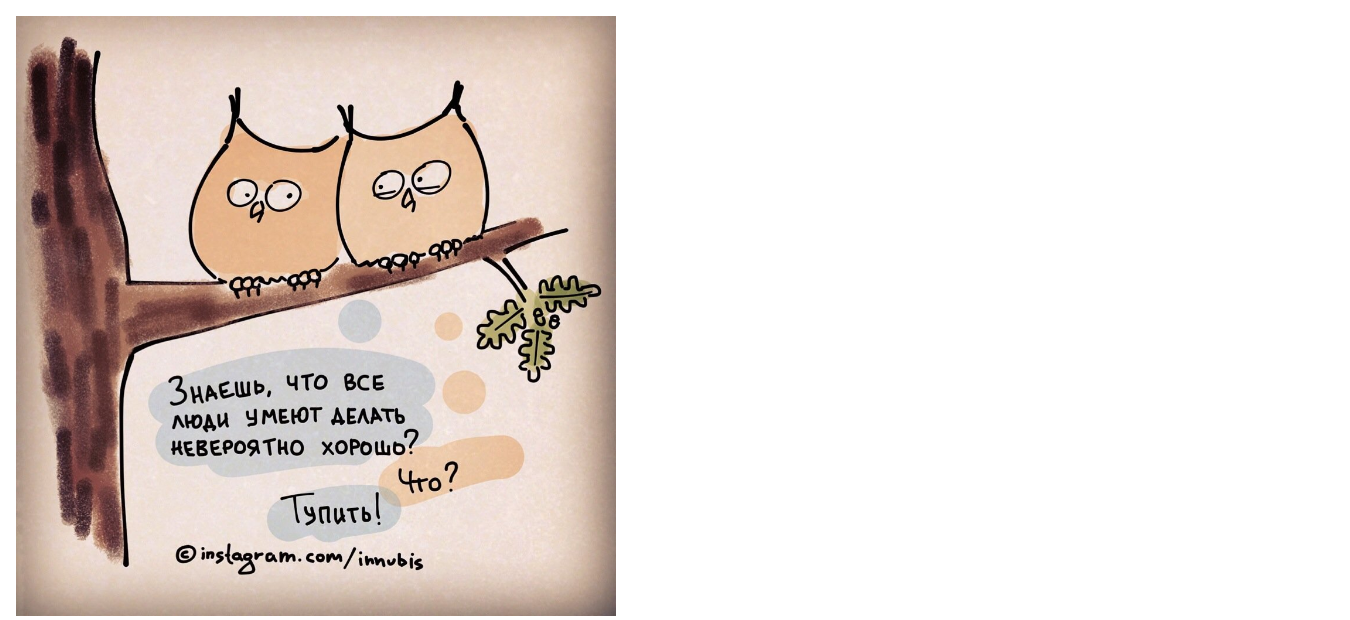 Знаешь, что все
люди умеют делать
невероятно хорошо?
Что?
Тупить!
© instagram.com/innubis